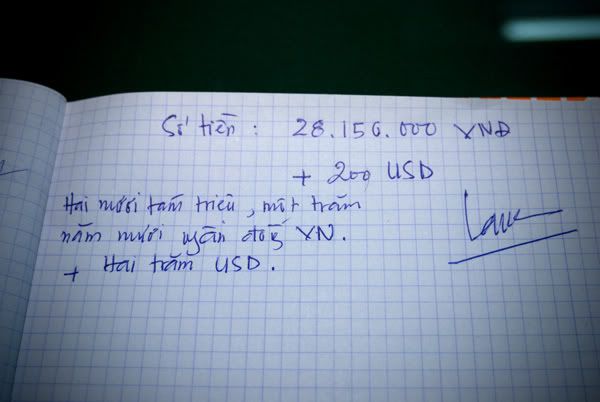 Số tiền : 28.150.000 VNĐ
+ 200 USD
Hai mươi tám triệu, một trăm
năm mươi ngàn đồng VN.
+ Hai trăm USD.